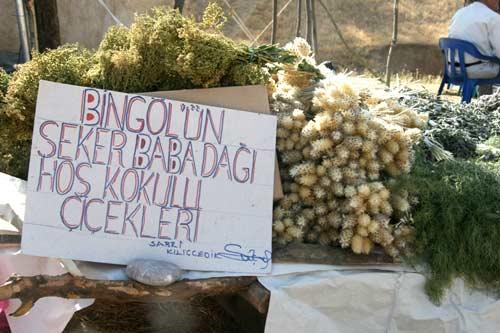 BİNGÖL'ÜN
ŞEKER BABA DAĞI
HOŞ KOKULU
ÇİÇEKLERİ
SABRİ
KILIÇCEDİK